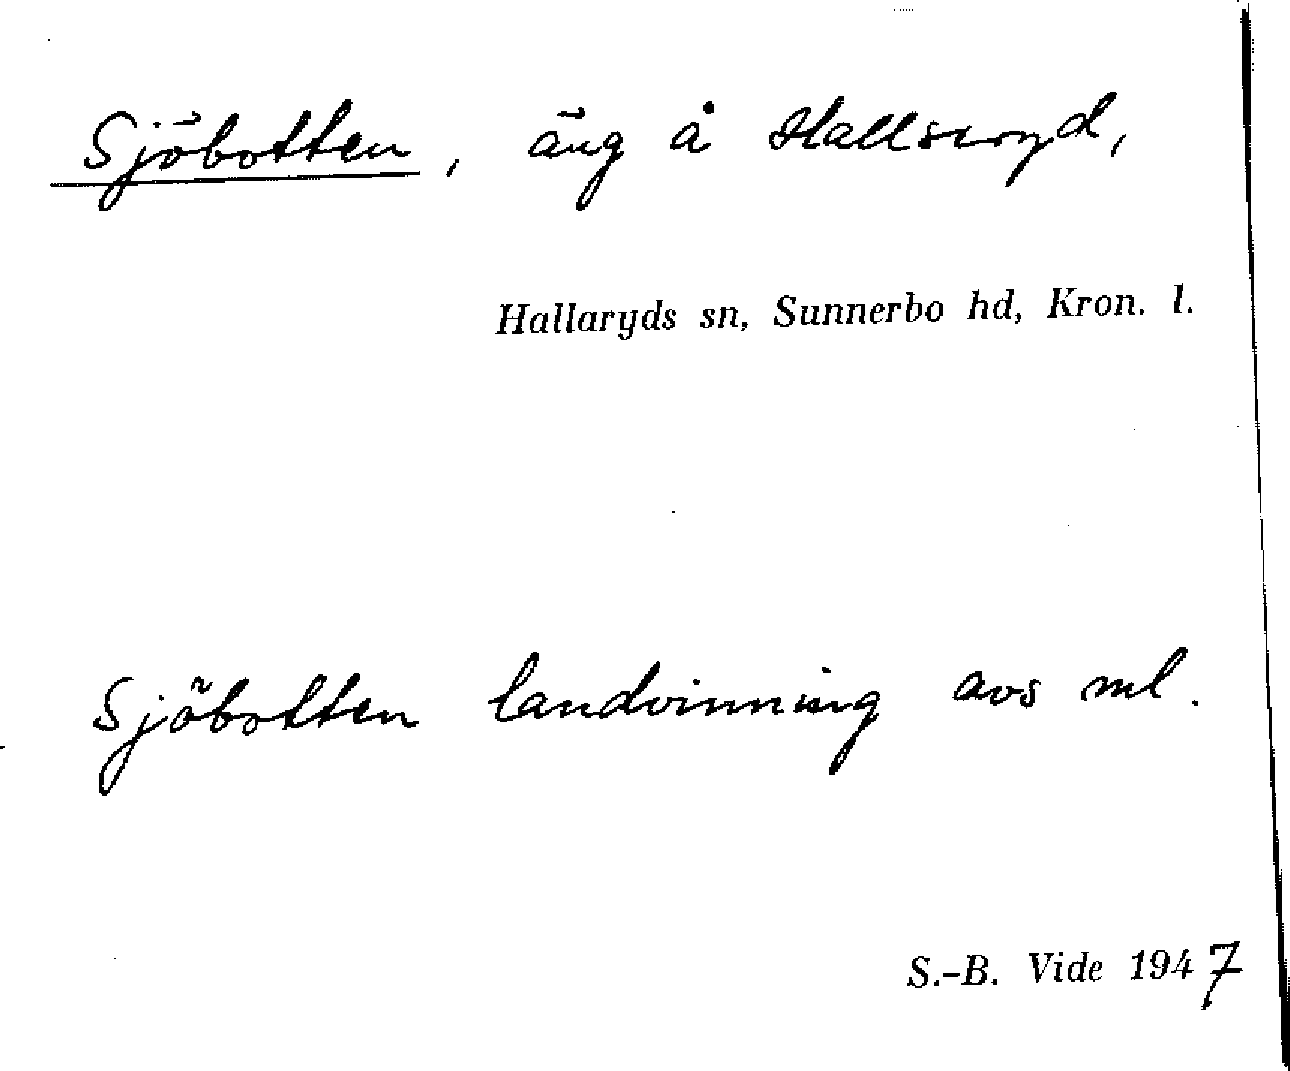 Sjöbotten, äng å Hallsryd,
Hallaryds sn, Sunnerbo hd, Kron. l.
Sjöbotten landvinning avs ml.
S.-B. Vide 1947